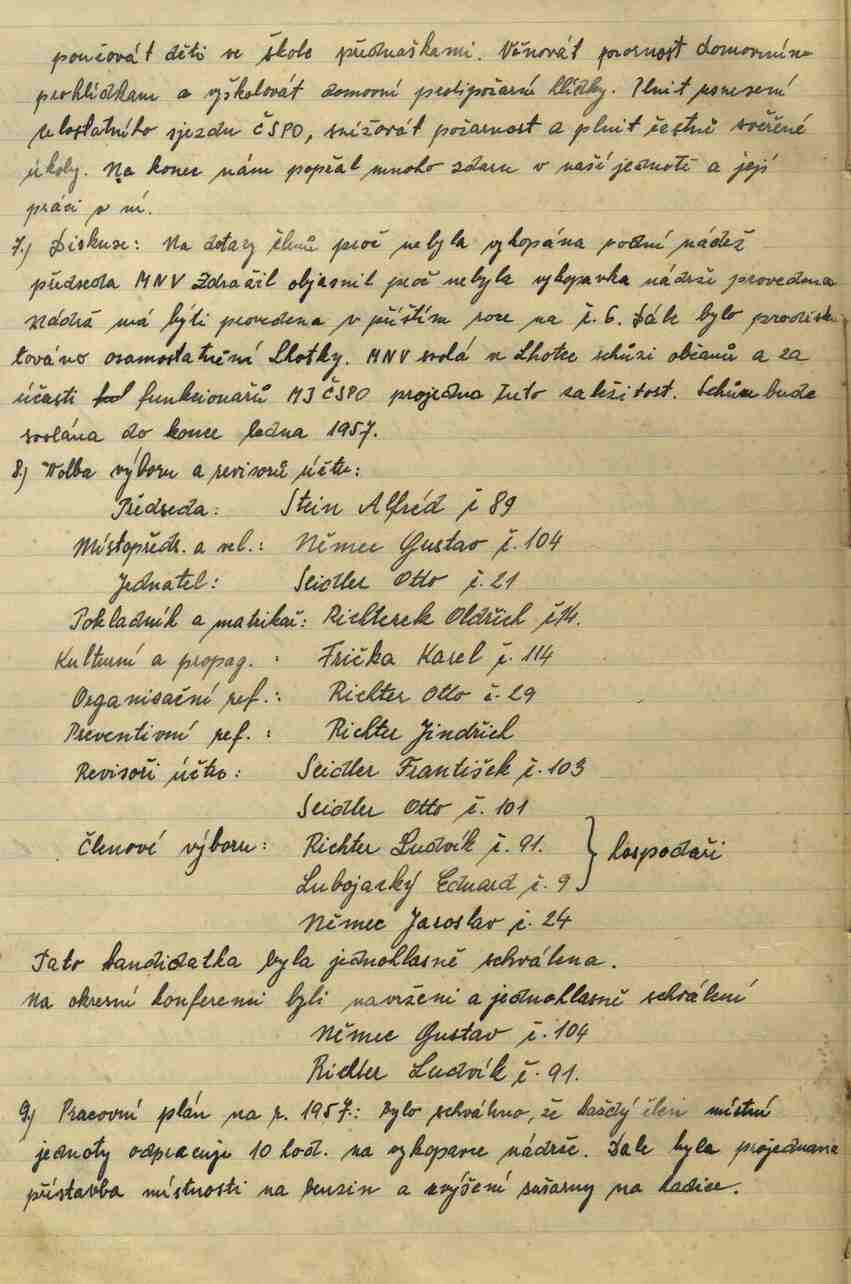 poučovát děti ve škole přednaškami. Věnovát pozornost domovním
prohlídkam a vyškolovát domovní protipožarní hlídky. Plnit usnesení
celostatního sjezdu ČSPO, snižovát požarnost a plnit čestně svěřené
úkoly. Na konec nám popřál mnoho zdaru v naší jednotě a její
práci v ní.
7.) Diskuse: Na dotazy členů proč nebyla vykopána vodní nádrž
předseda MNV Zdražil objasnil proč nebyla vykopavka nádrže provedena
Nádrž má býti provedena v příštím roce na č. 6. Dále bylo prodisku
továno osamostatnění Lhotky. MNV svolá ve Lhotce schůzi občanů a za
účasti funkcionařů MJ ČSPO projedna tuto zaležitost. Schůze bude
svolána do konce ledna 1957.
8.) Volba výboru a revisorů účtu:
Předseda: Stein Alfréd č 89
Místopředs. a vel.: Němec Gustav č. 104
Jednatel: Seidler Otto č. 21
Pokladník a matrikař: Richterek Oldřich č 14.
Kulturní a propag. : Frička Karel č. 114
Organisační ref.: Richter Otto č. 29
Preventivní ref. : Richter Jindřich
Revisoři účtu: Seidler František č. 103
Seidler Otto č. 101
Členové výboru: Richter Ludvík č. 91. } hospodaři
Lubojacký Eduard č. 9
Němec Jaroslav č. 24
Tato kandidatka byla jednohlasně schválena.
Na okresní konferenci byli navrženi a jednohlasně schválení
Němec Gustav č. 104
Richter Ludvík č. 91.
9.) Pracovní plán na r. 1957.: Bylo schváleno, že každý člen místní
jednoty odpracuje 10 hod. na vykopavce nádrže. Dále byla projednana
přístavba místnosti na benzin a zvýšení sušarny na hadice.